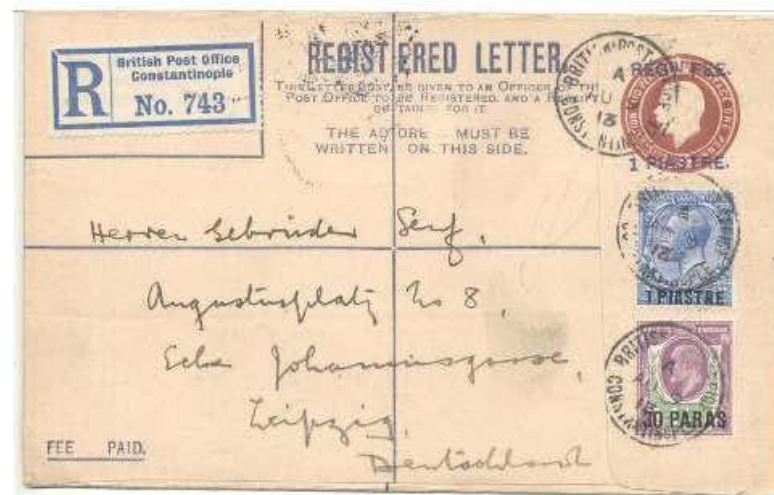 R
British Post Office
Constantinople
No. 743
REGISTERED LETTER.
THIS LETTER MUST BE GIVEN TO AN OFFICER OF THE
POST OFFICE TO BE REGISTERED, AND A RECEIPT
OBTAINED FOR IT.
THE ADDRE MUST BE
WRITTEN ON THIS SIDE.
REGN FEE.
1 PIASTRE.
BRITISH POST
Herren Gebrüder Senf,
1 PIASTRE
Augustusplatz No 8,
Ecke Johannisgasse,
BRITISH
30 PARAS
Leipzig,
Deutschland
FEE PAID.